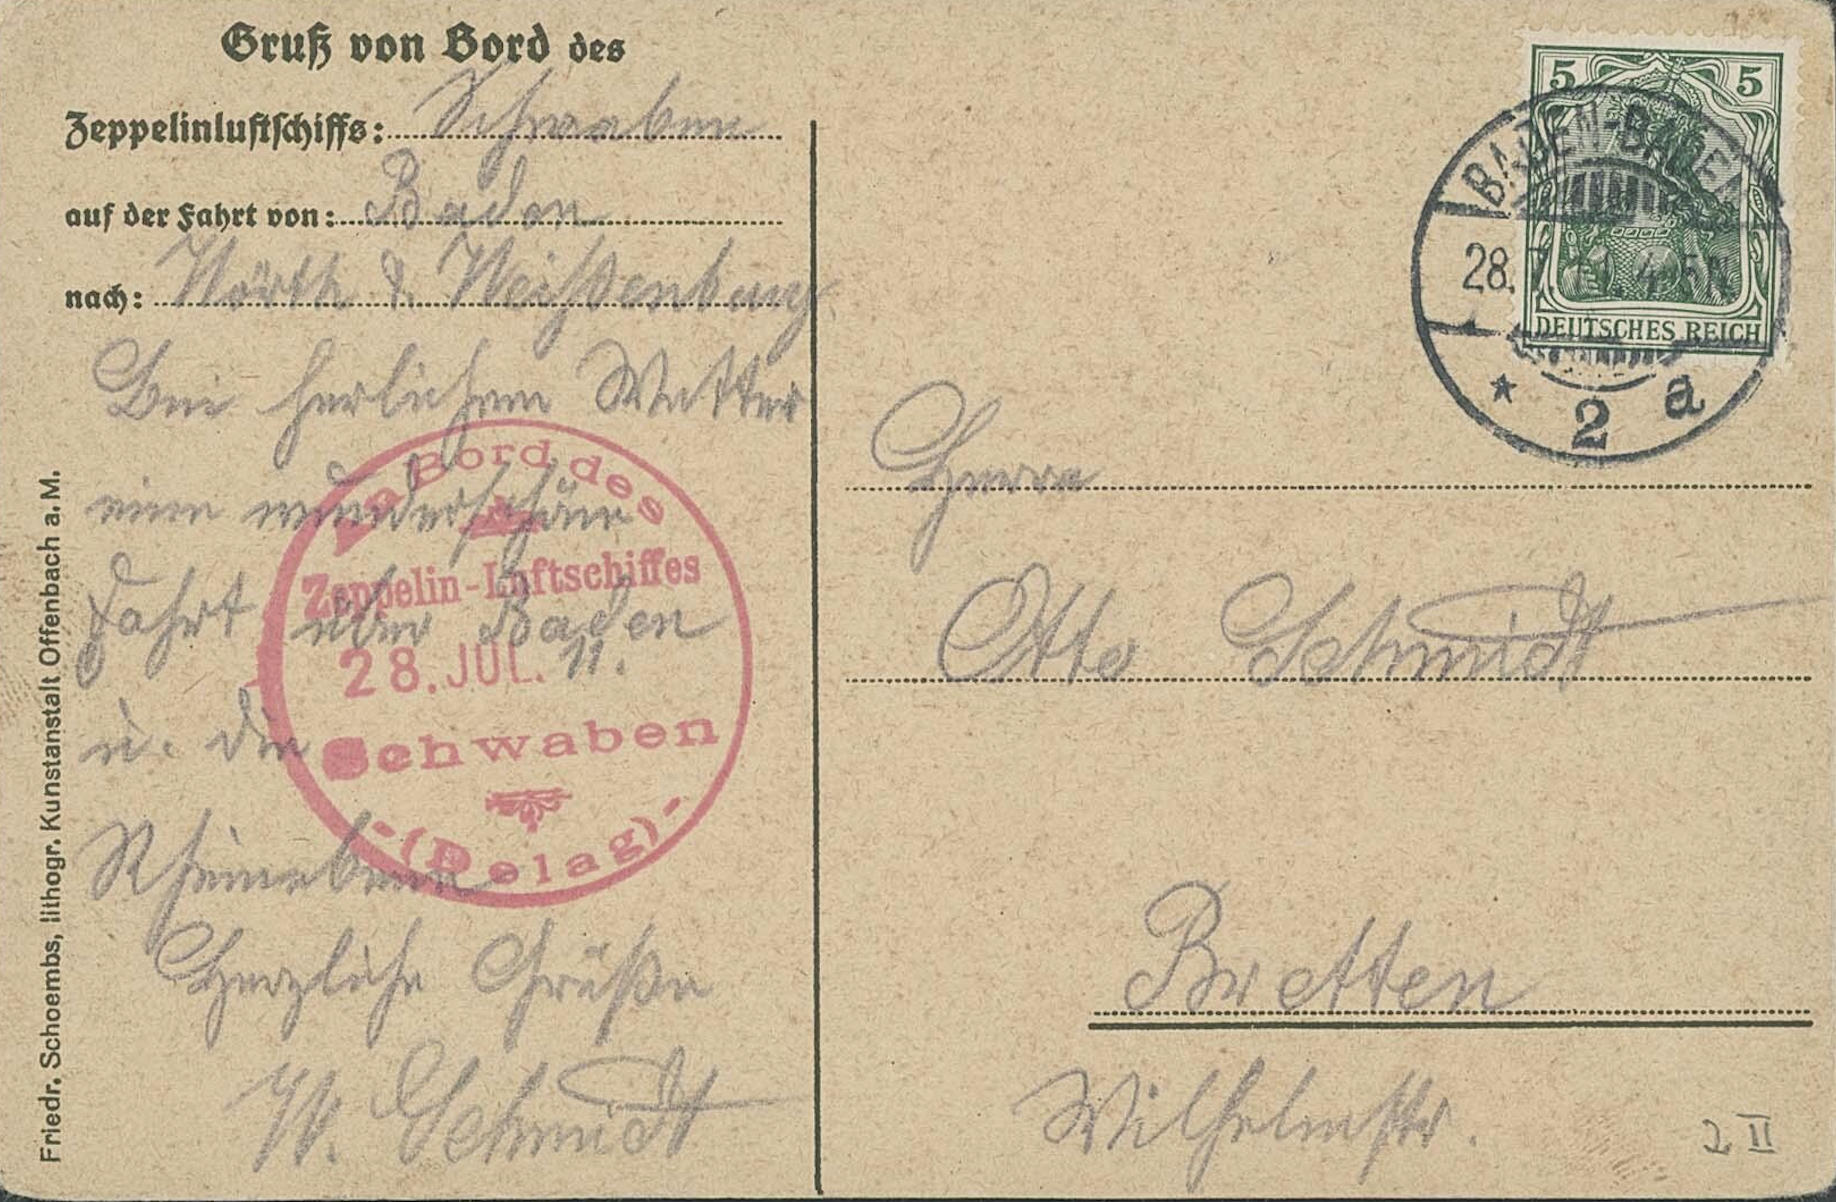 Gruß von Bord des
Zeppelinluftschiffs: Schwaben
auf der Fahrt von: Baden
nach: Wörth & Weißenburg
Bei herlichem Wetter
eine wunderschöne
Fahrt über Baden
u. die
Rheinebene
Herzliche Grüße
W. Schmidt
An Bord des
Zeppelin-Luftschiffes
28. JUL. 11.
Schwaben
-(Delag)-
Friedr. Schoembs, lithogr. Kunstanstalt Offenbach a. M.
5 5
DEUTSCHES REICH
BADEN-BADEN
28. 7. 11. 4-5N
* 2 a
Herrn
Otto Schmidt
Bretten
Wilhelmstr.
2 II